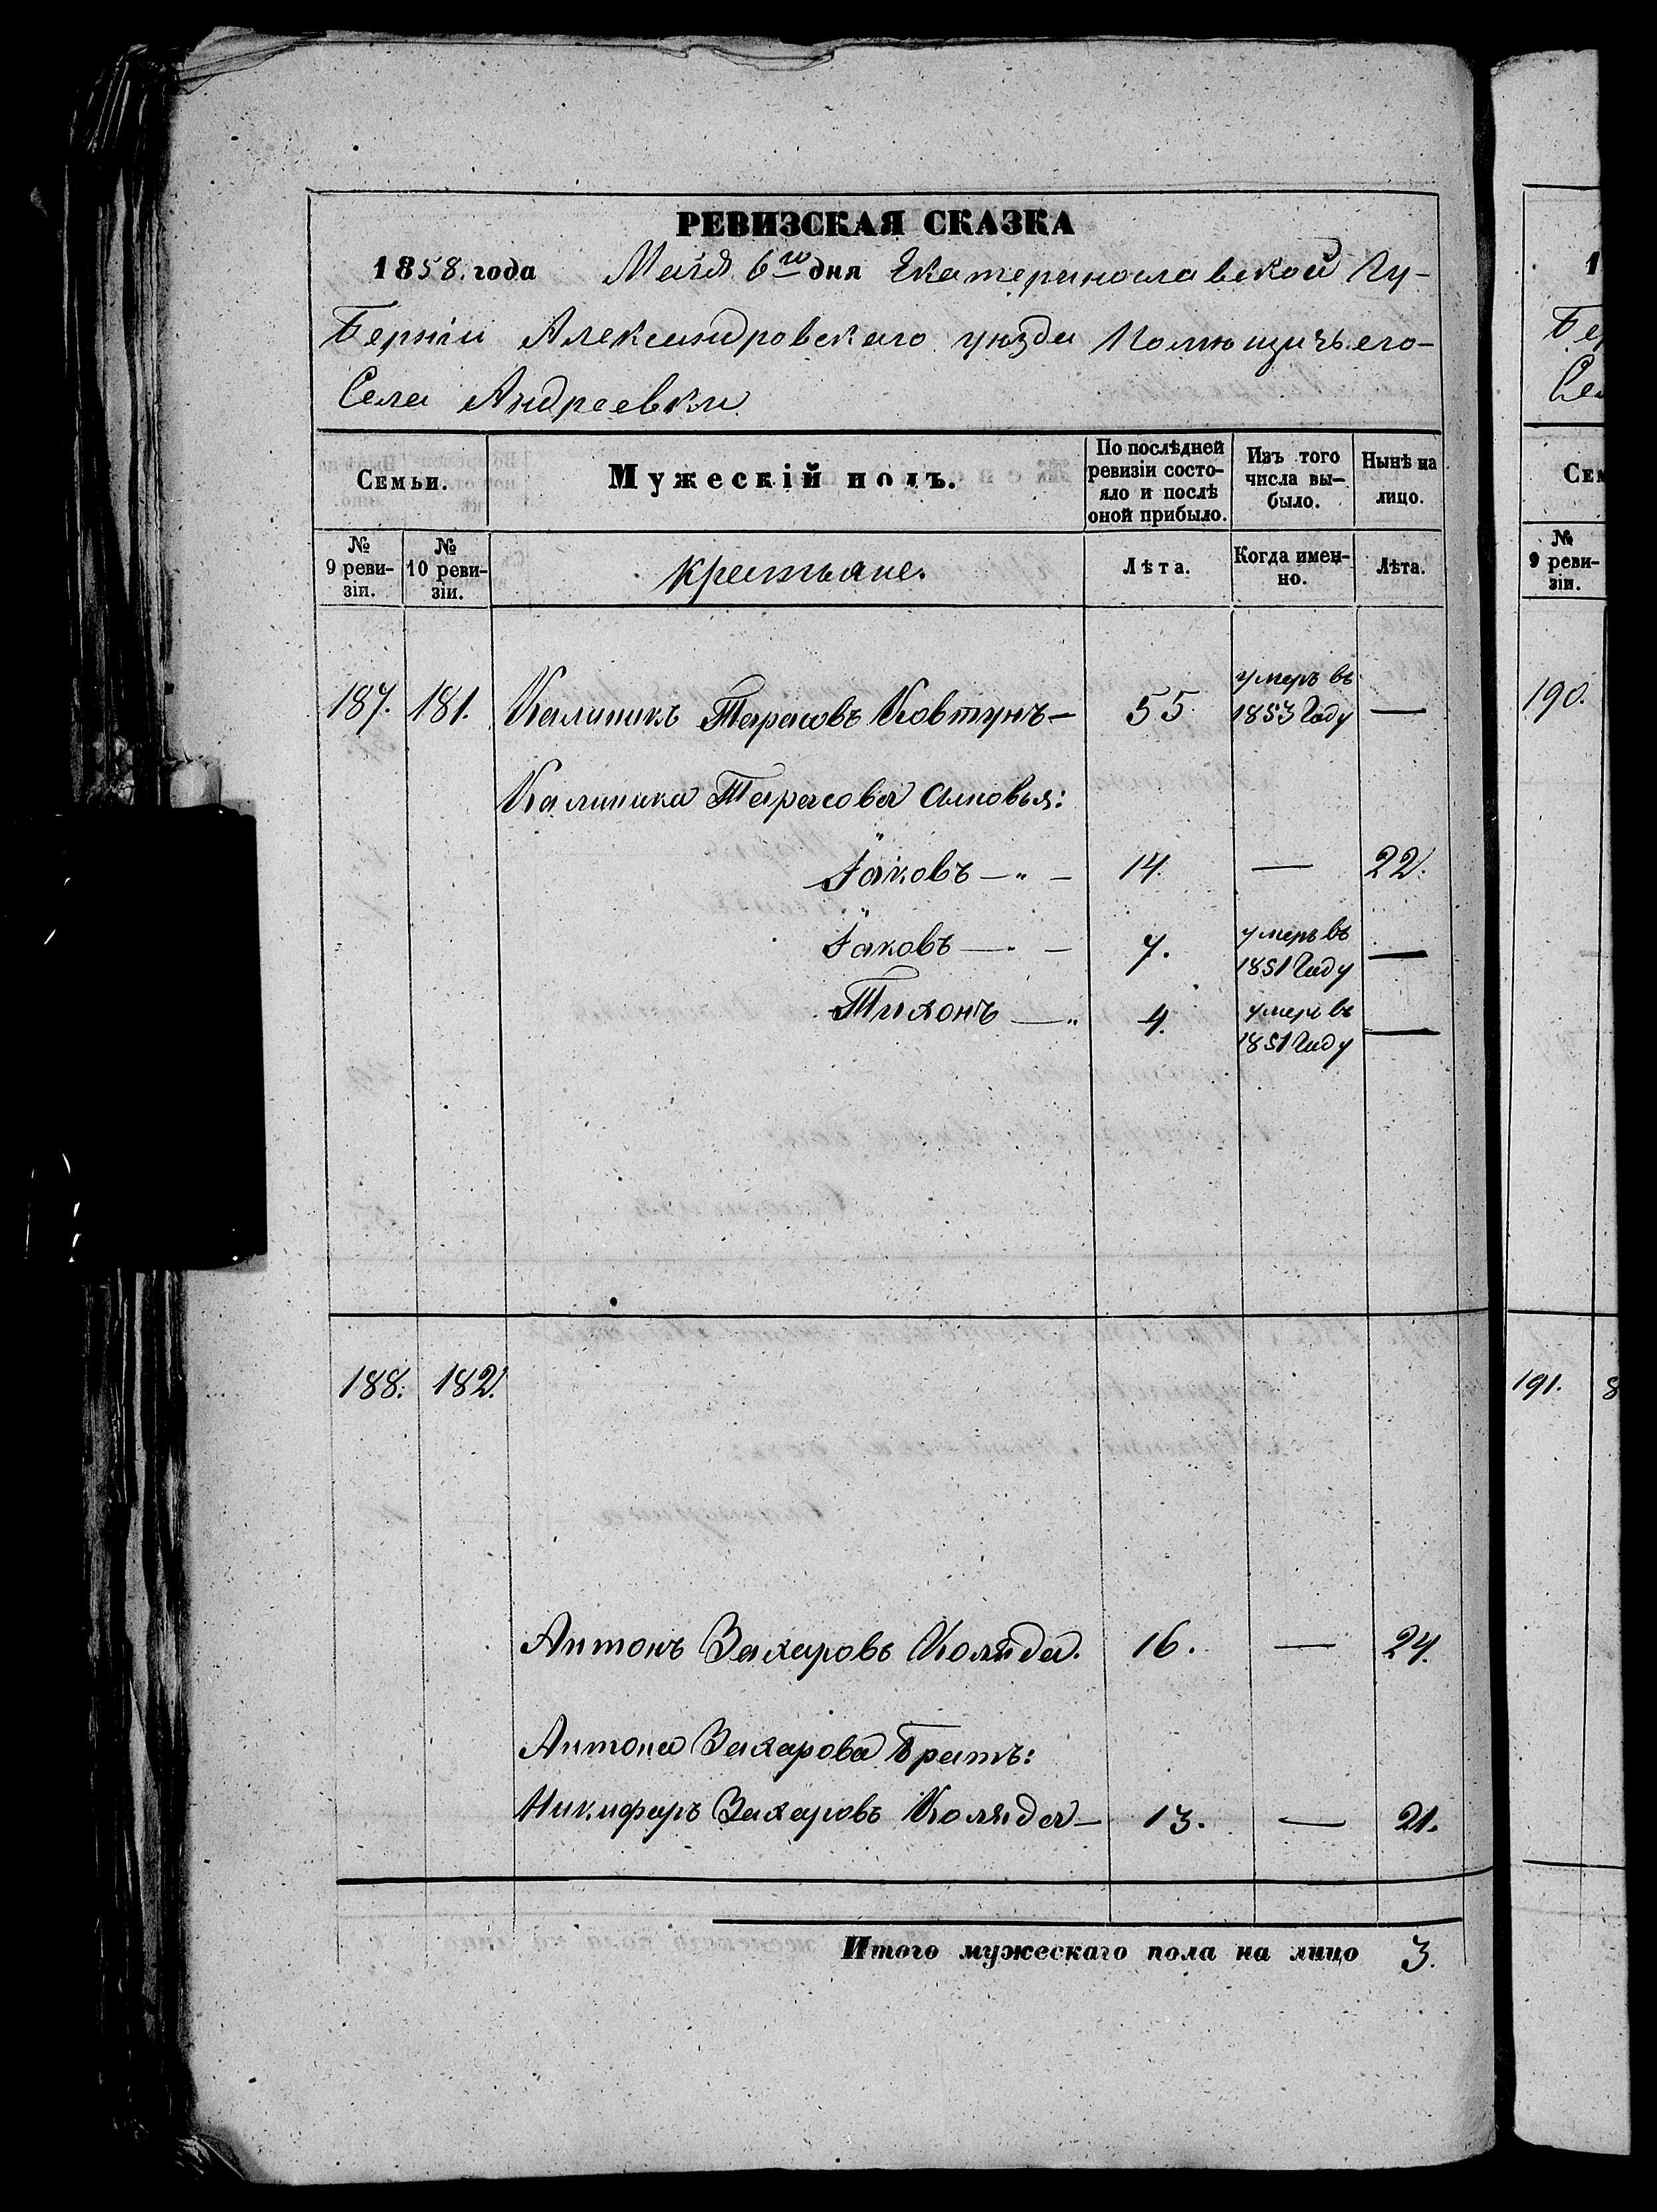 РЕВИЗСКАЯ СКАЗКА
1858. года Мая 6го дня Екатеринославской Гу-
берніи Александровскаго уѣзда Помѣщичьего
Села Андреевки
Семьи.
Мужескій полъ.
По послѣдней ревизіи состо-
яло и послѣ оной прибыло.
Изъ того числа вы-
было.
Нынѣ на лицо.
№ 9 реви-
зіи.
№ 10 реви-
зіи.
крестьяне.
Лѣта.
Когда имен-
но.
Лѣта.
187. 181. Калиникъ Тарасовъ Ковтунъ — 55 умеръ въ 1853 Году —
Калиника Тарасова сыновья:
Іаковъ — „ — 14. — 22.
Іаковъ — . — 7. умеръ въ 1851 Году —
Тихонъ — „ 4. умеръ въ 1851 Году —
188. 182.
Антонъ Захаровъ Коляда. 16. — 24.
Антона Захарова Братъ:
Никифоръ Захаровъ Коляда — 13. — 21.
Итого мужескаго пола на лицо 3.
1
Бе
Се
№ 9 реви-
зіи.
190.
191. 8